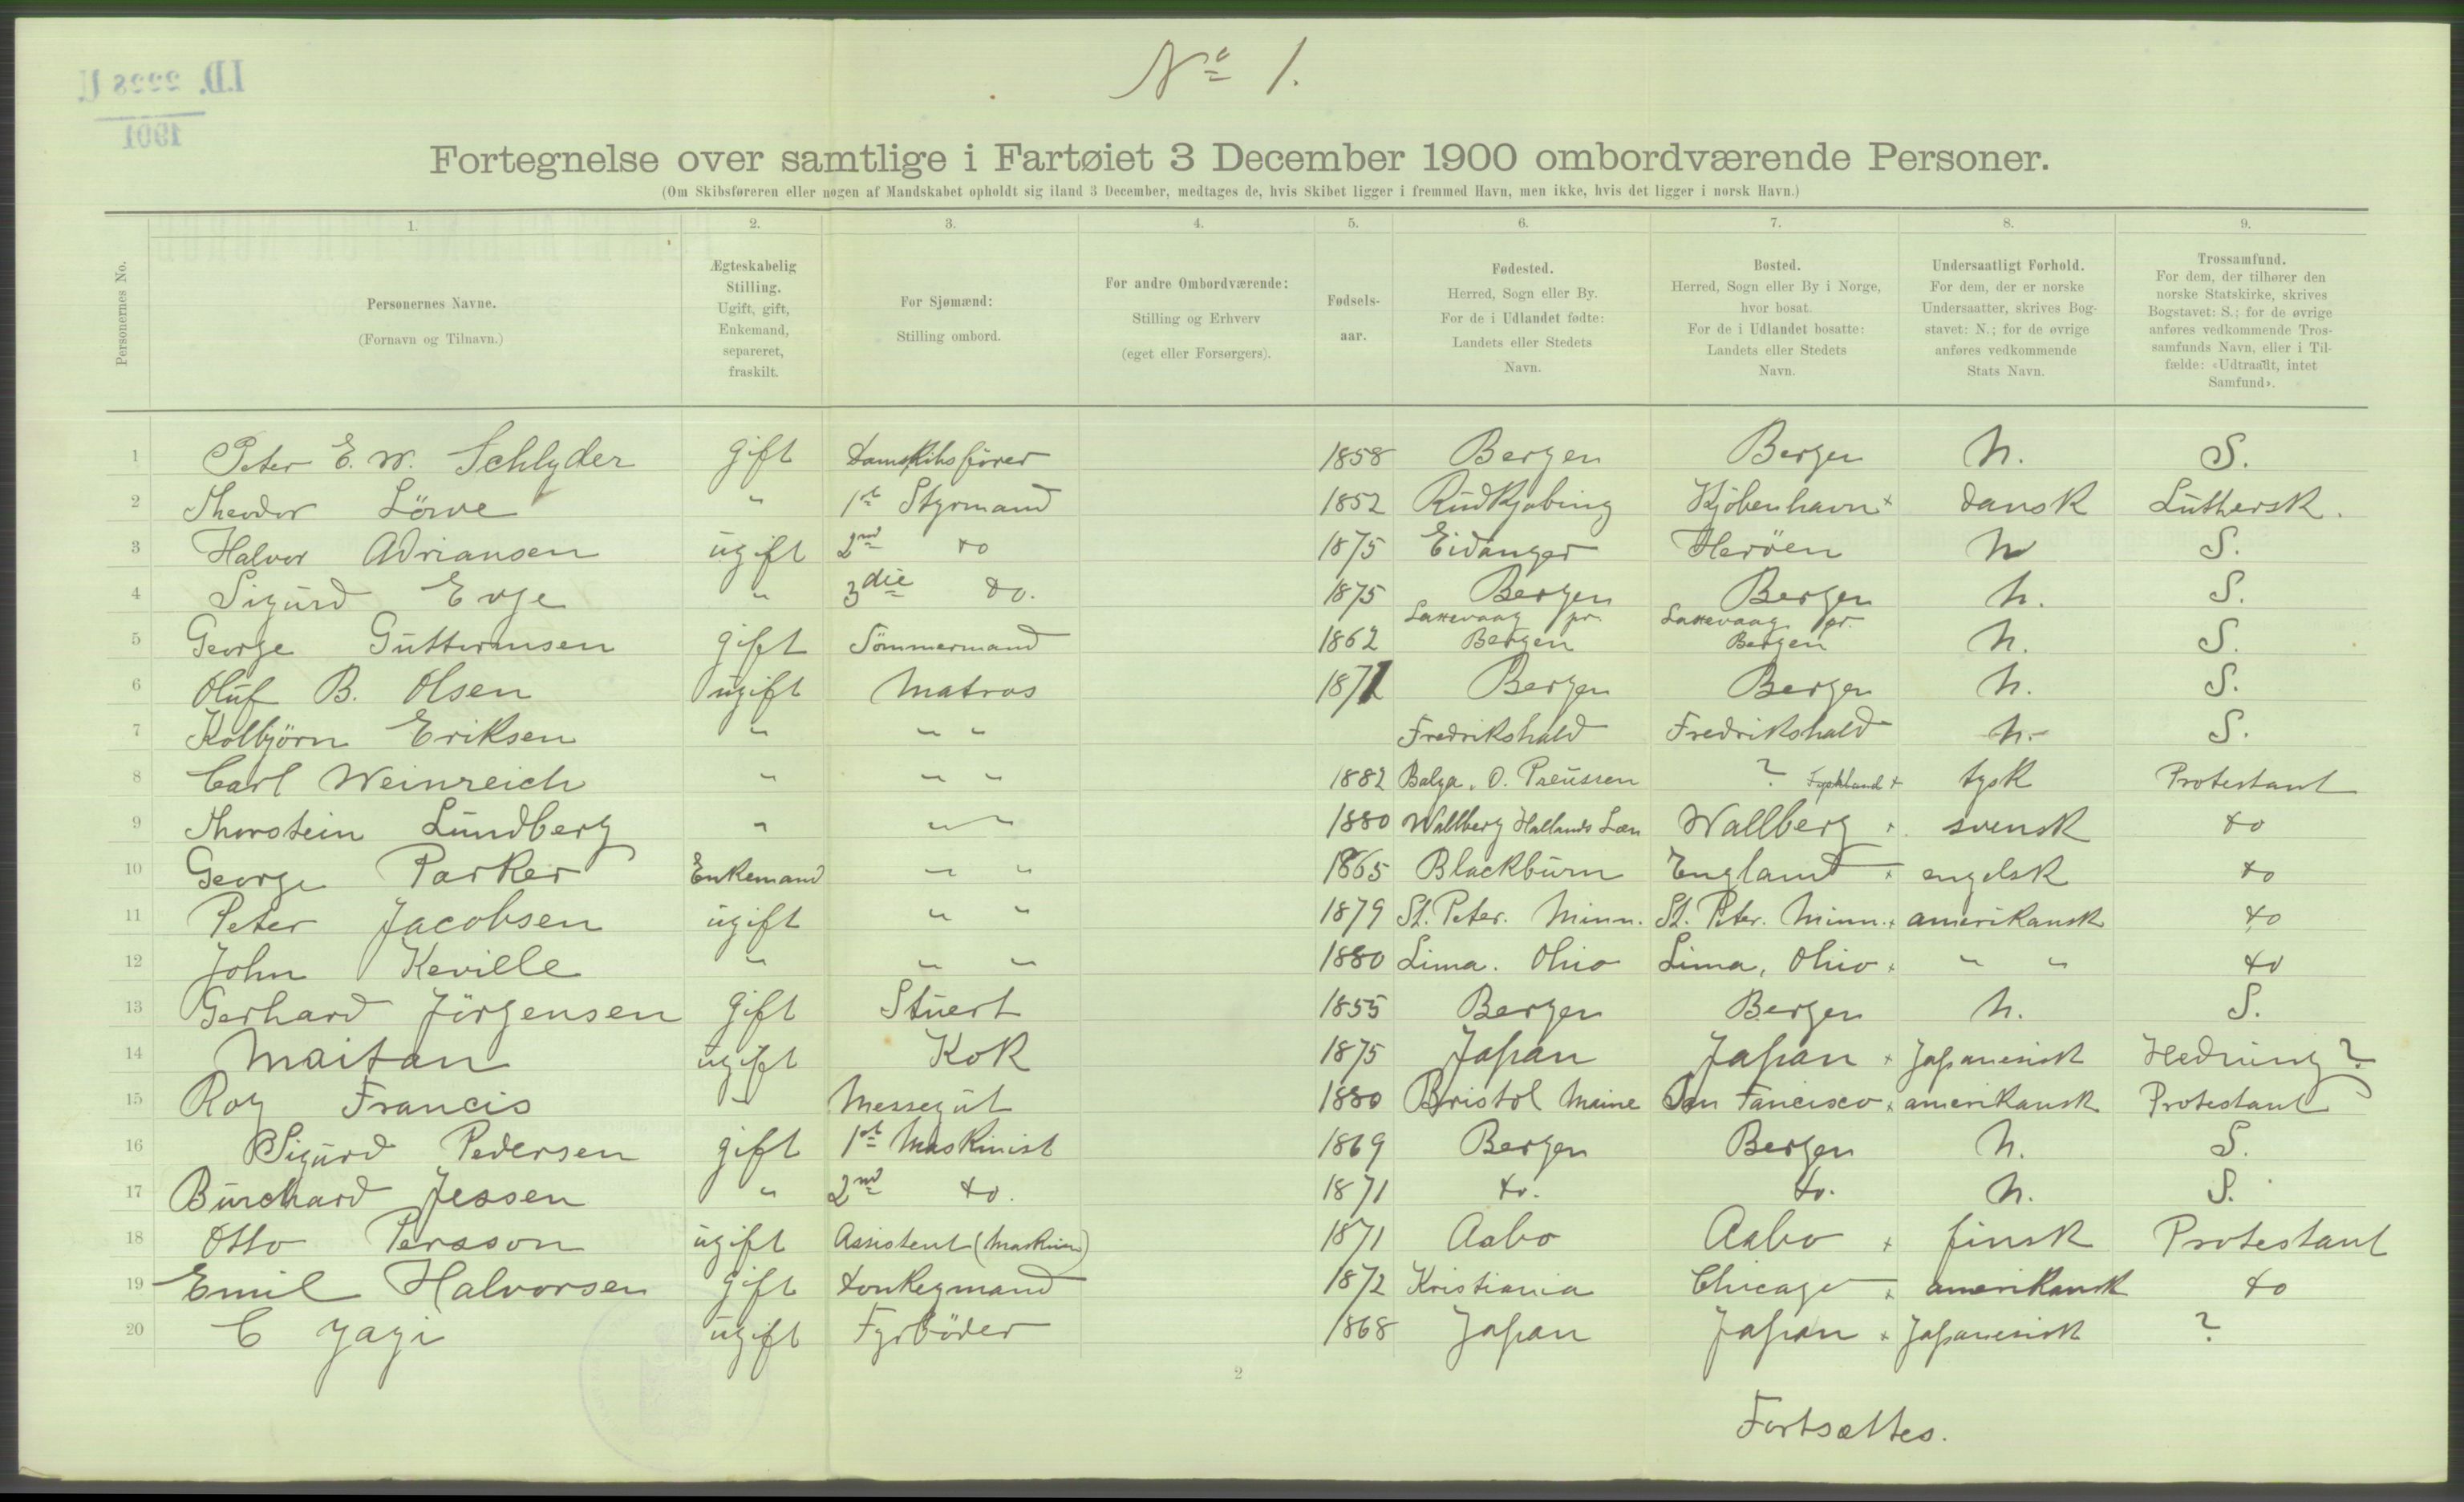 No 1.
I.D. 2228 U
1901
Fortegnelse over samtlige i Fartøiet 3 December 1900 ombordværende Personer.
(Om Skibsføreren eller nogen af Mandskabet opholdt sig iland 3 December, medtages de, hvis Skibet ligger i fremmed Havn, men ikke, hvis det ligger i norsk Havn.)
Personernes No.
1.
Personernes Navne.
(Fornavn og Tilnavn.)
2.
Ægteskabelig
Stilling.
Ugift, gift,
Enkemand,
separeret,
fraskilt.
3.
For Sjømænd:
Stilling ombord.
4.
For andre Ombordværende:
Stilling og Erhverv
(eget eller Forsørgers).
5.
Fødsels-
aar.
6.
Fødested.
Herred, Sogn eller By.
For de i Udlandet fødte:
Landets eller Stedets
Navn.
7.
Bosted.
Herred, Sogn eller By i Norge,
hvor bosat.
For de i Udlandet bosatte:
Landets eller Stedets
Navn.
8.
Undersaatligt Forhold.
For dem, der er norske
Undersaatter, skrives Bog-
stavet: N.; for de øvrige
anføres vedkommende
Stats Navn.
9.
Trossamfund.
For dem, der tilhører den
norske Statskirke, skrives
Bogstavet: S.; for de øvrige
anføres vedkommende Tros-
samfunds Navn, eller i Til-
fælde: «Udtraadt, intet
Samfund».
1 Peter E. W. Schlyder gift Damskibsfører 1858 Bergen Bergen N. S.
2 Theodor Löwe " 1st Styrmand 1852 Rudkjøbing Kjöbenhavn x dansk Luthersk.
3 Halvor Adriansen ugift 2nd do 1875 Eidanger Heröen N S.
4 Sigurd Evje " 3die do. 1875 Bergen Bergen N. S.
5 George Guttormsen gift Tömmermand 1862 Laxevaag pr. Bergen Laxevaag pr. Bergen N. S.
6 Oluf B. Olsen ugift Matros 1871 Bergen Bergen N. S.
7 Kolbjörn Eriksen " " " Fredrikshald Fredrikshald N. S.
8 Carl Weinreich " " " 1882 Balga. O. Preussen ? Tyskland x tysk Protestant
9 Thorstein Lundberg " " " 1880 Wallberg Hallands Læn Wallberg x svensk do
10 George Parker Enkemand " " 1865 Blackburn England x engelsk do
11 Peter Jacobsen ugift " " 1879 St. Peter. Minn. St. Peter. Minn. x amerikansk do
12 John Keville " " " 1880 Lima. Ohio Lima, Ohio x " " do
13 Gerhard Jörgensen gift Stuert 1855 Bergen Bergen N. S.
14 Maitan ugift Kok 1875 Japan Japan x Japanesisk Hedning?
15 Roy Francis " Messegut 1880 Bristol Maine San Fancisco x amerikansk Protestant
16 Sigurd Pedersen gift 1st Maskinist 1869 Bergen Bergen N. S.
17 Burchard Jessen " 2nd do. 1871 do. do. N. S.
18 Otto Persson ugift Assistent (Maskinen) 1871 Aabo Aabo x finsk Protestant
19 Emil Halvorsen gift Donkeymand 1872 Kristiania Chicago x amerikansk do
20 C Yagi ugift Fyrböder 1868 Japan Japan x Japanesisk ?
2
Fortsættes.